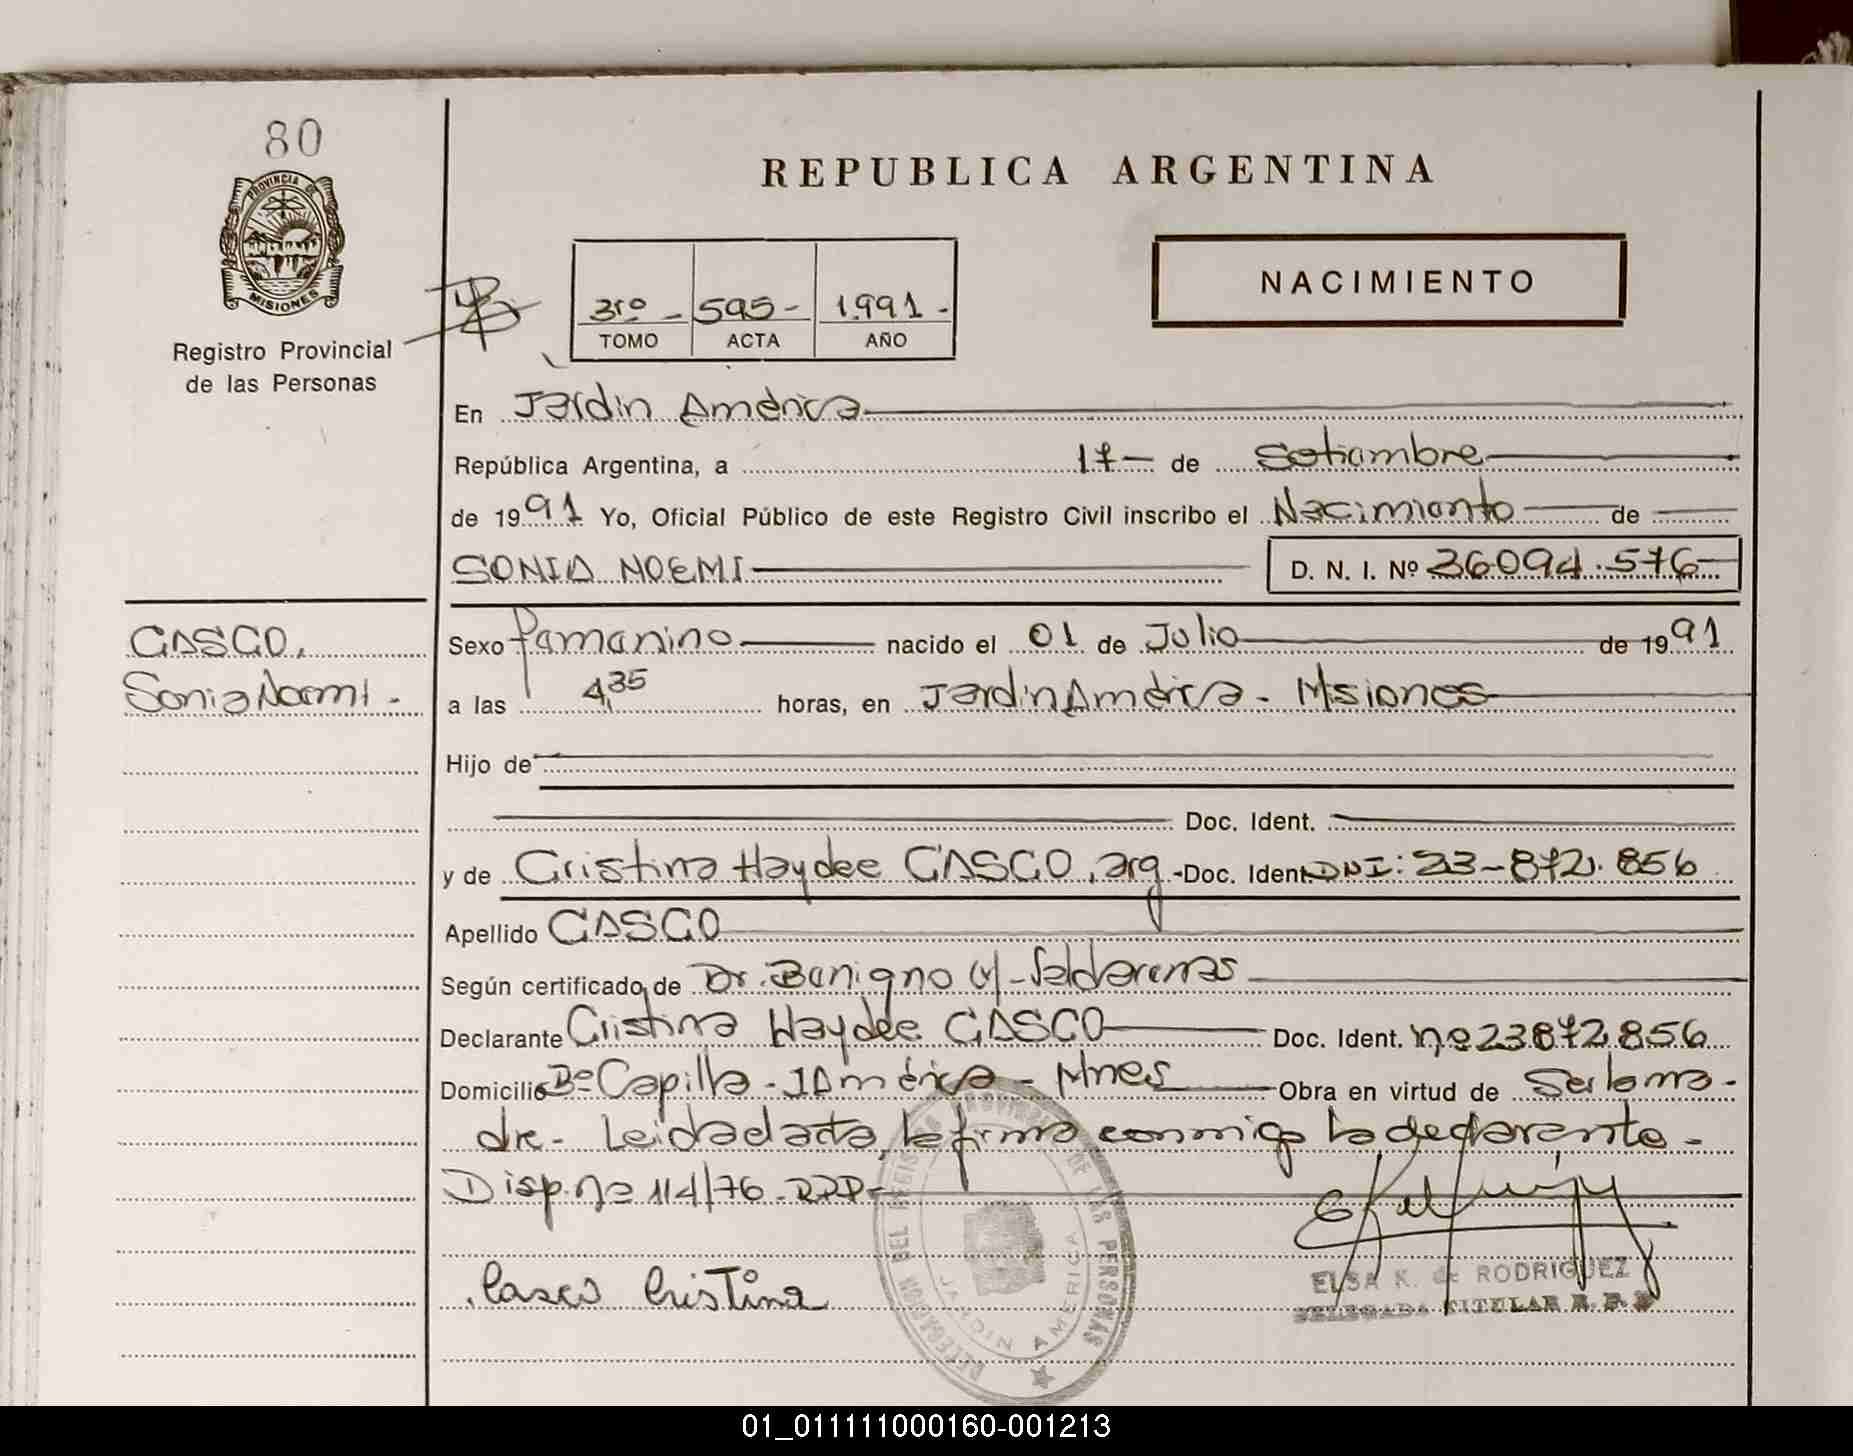 80
REPUBLICA ARGENTINA
PROVINCIA DE
MISIONES
Registro Provincial
de las Personas
3ro - 595 - 1.991 -
TOMO ACTA AÑO
NACIMIENTO
En Jardin América
República Argentina, a 17 - de Setiembre
de 1991 Yo, Oficial Público de este Registro Civil inscribo el Nacimiento de
SONIA NOEMI D. N. I. Nº 36094.576
CASCO,
Sonia Noemi -
Sexo femenino nacido el 01 de Julio de 1991
a las 4,35 horas, en Jardin América - Misiones
Hijo de
Doc. Ident.
y de Cristina Haydee CASCO, arg - Doc. Ident. DNI: 23-872.856
Apellido CASCO
Según certificado de Dr. Benigno
Declarante Cristina Haydée CASCO Doc. Ident. nº 23872.856
Domicilio Bº Capilla - J América - Mnes Obra en virtud de Ser la ma-
dre - Leida el acta, la firma conmigo la declarante -
Disp. nº 114/76 - RPP -
Casco Cristina
DELEGACION DEL REGISTRO PROVINCIAL DE LAS PERSONAS
JARDIN AMERICA
ELSA K. de RODRIGUEZ
DELEGADA TITULAR R. P. P.
01_011111000160-001213